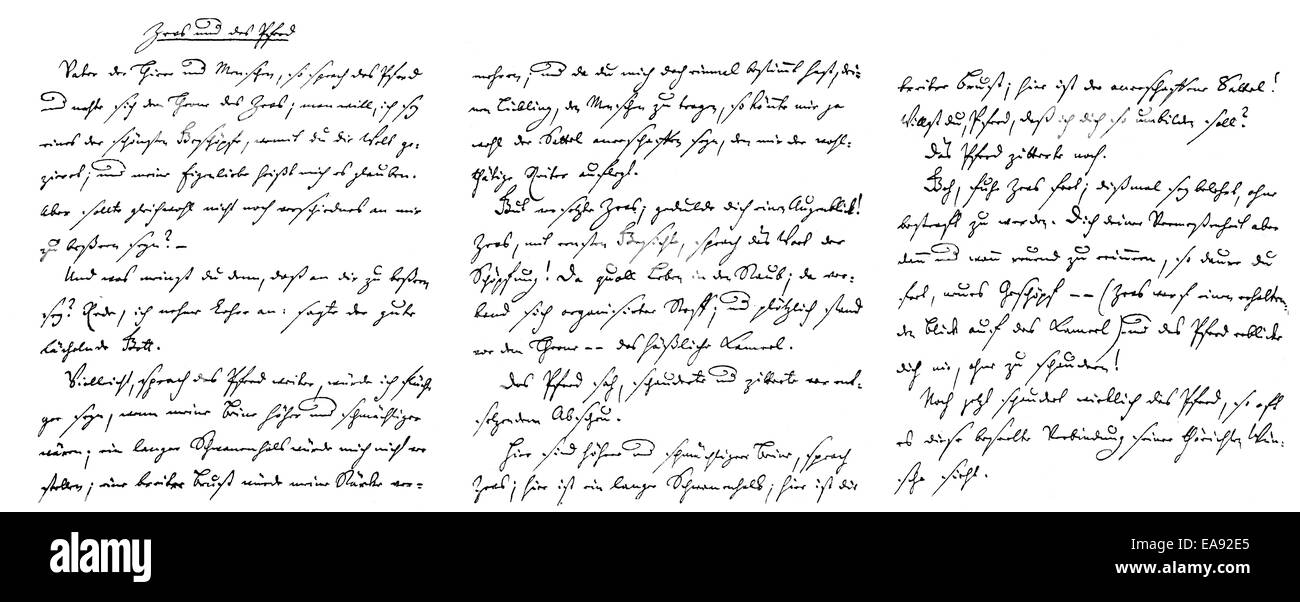 Zevs und das Pferd
Vater der Thiere und Menschen, so sprach das Pferd
und nahte sich dem Throne des Zevs; man will, ich sey
eines der schönsten Geschöpfe, womit du die Welt ge-
zieret; und meine Eigenliebe heißt mich es glauben.
Aber sollte gleichwohl nicht noch verschiednes an mir
zu bessern seyn? —
Und was meinst du denn, daß an dir zu bessern
sey? Rede, ich nehme Lehre an: sagte der gute
lächelnde Gott.
Vielleicht, sprach das Pferd weiter, würde ich flüchti-
ger seyn, wenn meine Beine höher und schmächtiger
wären; ein langer Schwanenhals würde mich nicht ver-
stellen; eine breitere Brust würde meine Stärke ver-
mehren; und da du mich doch einmal bestimmt hast, dei-
nen Liebling, den Menschen zu tragen, so könnte mir ja
wohl der Sattel anerschaffen seyn, den mir der wohl-
thätige Reiter auflegt.
Gut versetzte Zevs; gedulde dich einen Augenblick!
Zevs, mit ernstem Gesichte, sprach das Wort der
Schöpfung! Da quoll Leben in den Staub; da ver-
band sich organisirter Stoff; und plötzlich stand
vor dem Throne -- das häßliche Kameel.
Das Pferd sah, schauderte und zitterte vor ent-
setzendem Abscheu.
Hier sind höhere und schmächtigere Beine, sprach
Zevs; hier ist ein langer Schwanenhals; hier ist die
breitere Brust; hier ist der anerschaffene Sattel!
Willst du, Pferd, daß ich dich so umbilden soll?
Das Pferd zitterte noch.
Geh, fuhr Zevs fort; dießmal sey belehrt, ohne
bestraft zu werden. Dich deiner Vermessenheit aber
dann und wann reuend zu erinnern, so daure du
fort, neues Geschöpf -- (Zevs warf einen erhalten-
den Blick auf das Kameel) und das Pferd erblicke
dich nie, ohne zu schaudern!
Noch jetzt schaudert wirklich das Pferd, so oft
es diese beseelte Verbindung seiner thörichten Wün-
sche sieht.
a alamy stock photo
alamy
Image ID: EA92E5
www.alamy.com